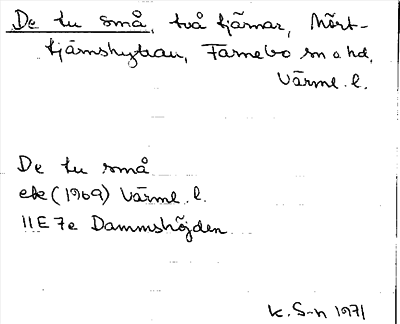 De tu små, två tjärnar, Mört-
tjärnshyttan, Färnebo sn o hd,
Värml. l.
De tu små
ek (1969) Värml. l.
11E7e Dammshöjden
K. S-n 1971